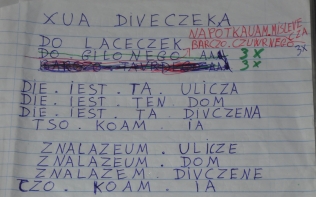 XUA DIVECZEKA
DO LACECZEK
NAPOTKAUAM.MISIEVE
DO GILONEGO AAA 3X
BARCZO.CZUWRNEGE IA
3X
3X
DIE. IEST. TA. ULICZA
DIE. IEST. TEN DOM
DIE. IEST. TA DIVCZENA
TSO. KOAM. IA
ZNALAZEUM. ULICZE
ZNALAZEUM. DOM
ZNALAZEM. DIVCZENE
CZO. KOAM. IA